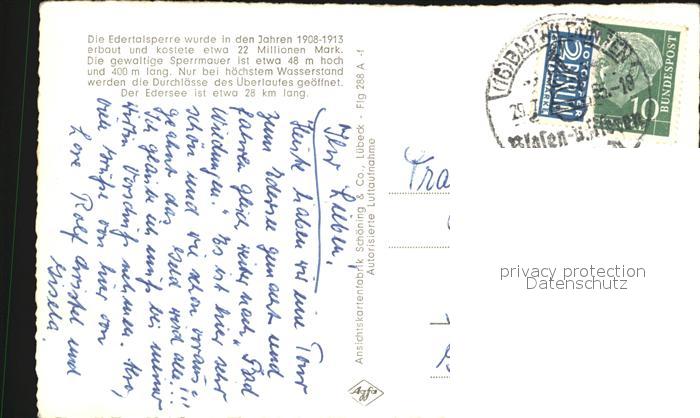 Die Edertalsperre wurde in den Jahren 1908-1913
erbaut und kostete etwa 22 Millionen Mark.
Die gewaltige Sperrmauer ist etwa 48 m hoch
und 400 m lang. Nur bei höchstem Wasserstand
werden die Durchlässe des Überlaufes geöffnet.
Der Edersee ist etwa 28 km lang.
Ihr Lieben!
Heute haben wir eine Tour
zum Edersee gemacht und
fahren gleich weiter nach "Bad
Wildungen." Es ist hier sehr
schön und wie schon voraus-
geahnt das Geld wird alle!!!
Ich glaube ich muß bei meiner
Vorschuß nehmen.
viele Grüße von hier von
Rolf und
Gisela.
Ansichtskartenfabrik Schöning & Co., Lübeck - Flg 288 A - f
Autorisierte Luftaufnahme
Agfa
(16) BAD WILDUNGEN
29.
10
BUNDESPOST
2
NOTOPFER
BERLIN
privacy protection
Datenschutz